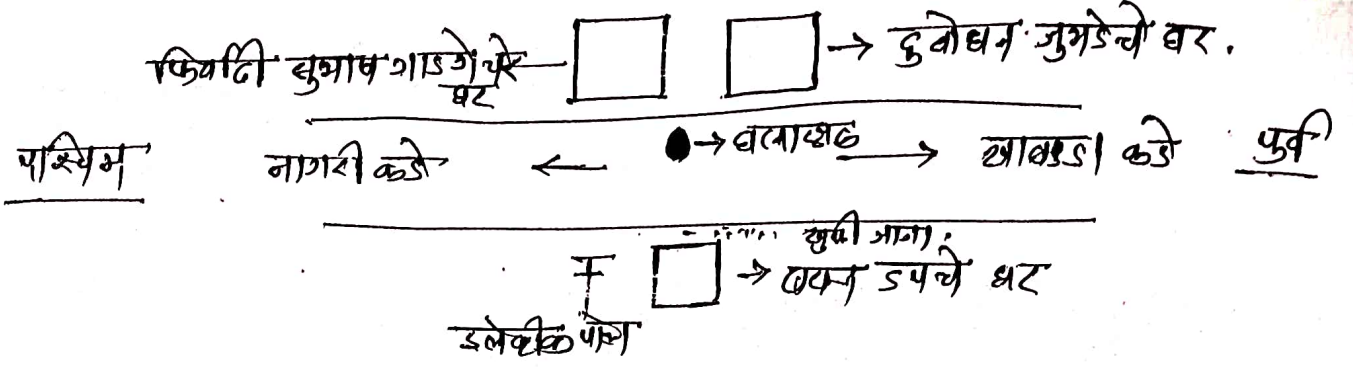 फिर्यादी सुभाष गाडगेचे
घर
दुर्योधन जुमडेचे घर.
पश्चिम नागरी कडे घटनास्थळ कडे पुर्व
खुली जागा.
घर
इलेक्ट्रीक पोल